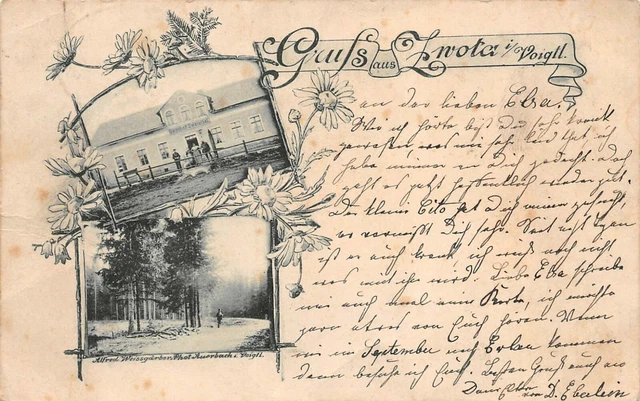 Gruß aus Zwota i/Voigtl.
an der lieben Elsa.
Wie ich hörte bist Du sehr krank
gewesen was mir sehr leid that ich
habe immer an Dich gedacht. doch
geht es jetzt hoffentlich wieder gut.
Der kleine Cito hat Dich
er vermißt Dich sehr. Seit acht Tagen
ist er auch krank ich weiß noch nicht
was mit ihm wird. Liebe Elsa schreibe
mir auch mal eine Karte, ich möchte
gern etwas von Euch hören. Wenn
wir im September nach Erlau kommen
dann besuche ich Euch. Besten Gruß auch an
Deine Eltern von D. Eberlein
Alfred Weissgärber, Phot. Auerbach i. Voigtl.